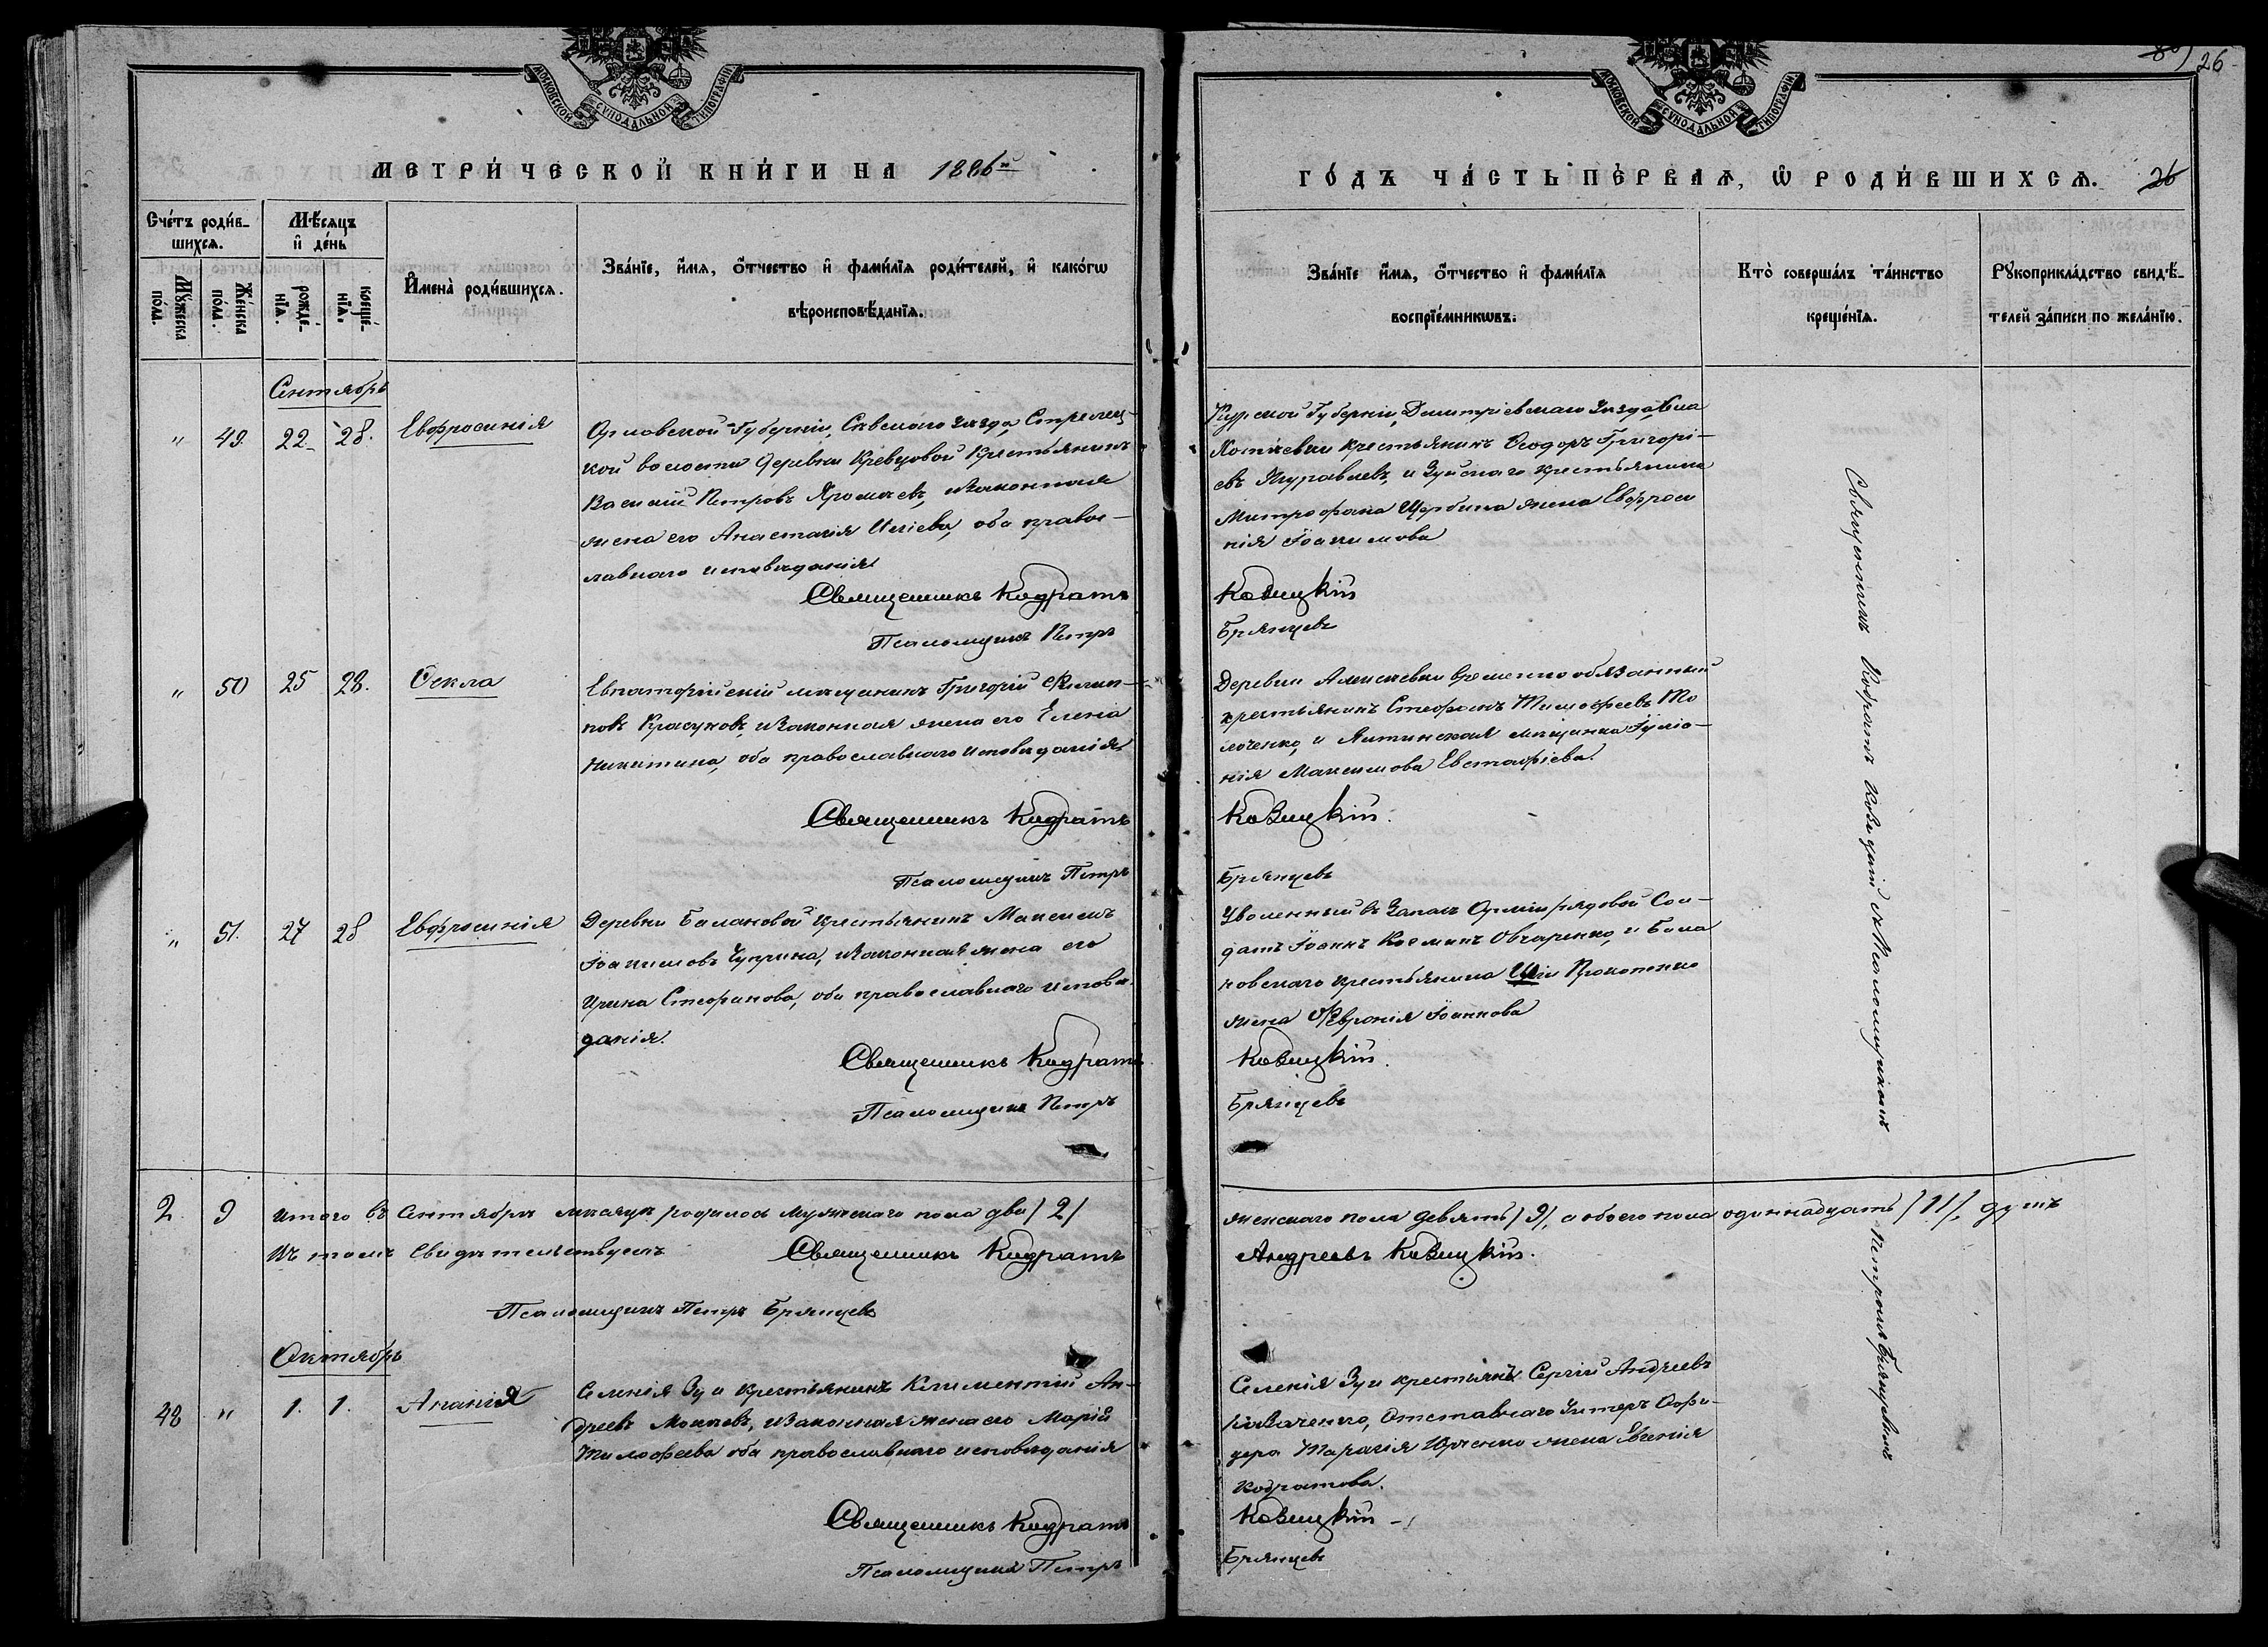 МОСКОВСКОЙ СѴНОДАЛЬНОЙ ТИПОГРАФІИ
МЕТРИ́ЧЕСКОЙ КНИ́ГИ НА 1886й
Сче́тъ роди́в-
шихсѧ.
Мѣ́сѧцъ
и҆ де́нь
Му́жеска
по́ла.
Же́нска
по́ла.
рожде́-
нїѧ.
креще́-
нїѧ.
И҆мена̀ роди́вшихсѧ.
Зва́нїе, и҆́мѧ, ѻ҆́тчество и҆ фами́лїѧ роди́телей, и҆ како́гѡ
вѣроисповѣ́данїѧ.
Сентябрь
" 49. 22. 28. Евфросинія
Орловской Губерніи, Севскаго уѣзда, Стрелец-
кой волости деревни Кревцовой крестьянинъ
Василій Петровъ, и законная
жена его Анастасія Иліева, оба правос-
лавнаго исповѣданія
Священникъ Кодратъ
Псаломщикъ Петръ
" 50 25 28. Ѳекла
Евпаторійскій мѣщанинъ Григорій Филип-
повъ Красуновъ, и законная жена его Елена
Никитина, оба православнаго исповѣданія
Священникъ Кодратъ
Псаломщикъ Петръ
" 51. 27 28 Евфросинія
Деревни Балановой крестьянинъ Максимъ
Іоакимовъ Чуприна, и законная жена его
Ирина Стефанова, оба православнаго исповѣ-
данія.
Священникъ Кодратъ
Псаломщикъ Петръ
2 9 Итого въ Сентябрѣ мѣсяцѣ родилось мужескаго пола два /2/
Въ томъ свидѣтельствуемъ Священникъ Кодратъ
Псаломщикъ Петръ Брянцевъ
Октябрь
42 " 1. 1. Ананія
Селенія Зуи крестьянинъ Климентій Ан-
дреевъ, и законная жена его Марія
Тимофеева оба православнаго исповѣданія
Священникъ Кодратъ
Псаломщикъ Петръ
26
МОСКОВСКОЙ СѴНОДАЛЬНОЙ ТИПОГРАФІИ
ГО́ДЪ ЧА́СТЬ ПЕ́РВАѦ, Ѡ҆ РОДИ́ВШИХСѦ. 26
Зва́нїе и҆́мѧ, ѻ҆́тчество и҆ фами́лїѧ
воспрїе́мникѡвъ.
Кто̀ соверша́лъ та́инство
креще́нїѧ.
Рꙋкоприкла́дство свидѣ́-
телей за́писи по жела́нїю.
Курской Губерніи, Дмитріевскаго уѣзда,
крестьянинъ Ѳеодоръ Григорі-
евъ Журавлевъ, и Зуйскаго крестьянина
Митрофана Щербина жена Евфроси
нія Іоакимова
Ковицкій
Брянцевъ
Деревни временно обязанный
крестьянинъ Стефанъ Тимофеевъ То
лоченко, и Ялтинская мѣщанка Іуліа-
нія Максимова Евстафіева.
Ковицкій.
Брянцевъ
Уволенный въ Запасъ Арміи рядовой Сол-
датъ Іоаннъ Козминъ Овчаренко, и Бала
новскаго крестьянина Иліи Прокопенко
жена Февронія Іоаннова
Ковицкій.
Брянцевъ
женскаго пола девять /9/, а обоего пола одиннадцать /11/, душъ
Андреевъ Ковицкій.
Селенія Зуи крестьянинъ Сергій Андреевъ
Коваченко, Отставнаго Унтеръ Офи-
цера Тарасія Юрченко жена Евгенія
Кодратова.
Ковицкій
Брянцевъ
Священникъ Кодратъ Ковицкій съ Псаломщикомъ Петромъ Брянцевымъ